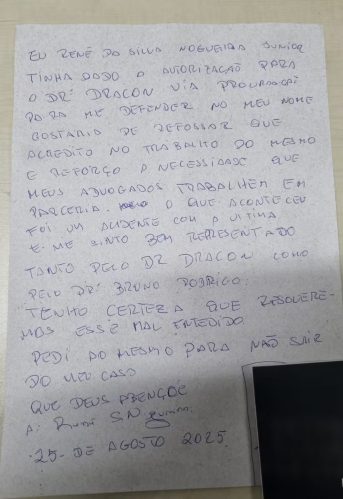 EU RENÉ DA SILVA NOGUEIRA JUNIOR
TINHA DADO A AUTORIZAÇÃO PARA
O DR DRACON VIA PROCURAÇÃ
PARA ME DEFENDER NO MEU NOME
GOSTARIA DE REFOSSAR QUE
ACREDITO NO TRABALHO DO MESMO
E REFORÇO A NECESSIDADE QUE
MEUS ADVOGADOS TRABALHEM EM
PARCERIA. O QUE ACONTECEU
FOI UM ACIDENTE COM A VITIMA
E ME SINTO BEM REPRESENTADO
TANTO PELO DR DRACON COMO
PELO DR BRUNO RODRIGO.
TENHO CERTEZA QUE RESOLVERE-
MOS ESSE MAL ENTEDIDO
PEDI AO MESMO PARA NÃO SAIR
DO MEU CASO
QUE DEUS ABENÇOE
A: Renê SN
25- DE AGOSTO 2025